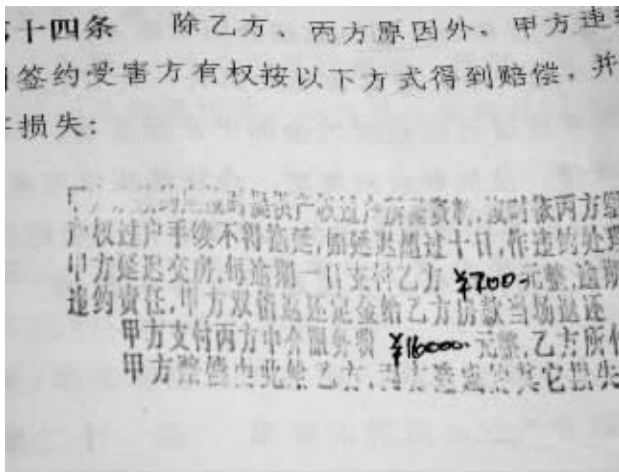 十四条 除乙方、丙方原因外,甲方违
签约受害方有权按以下方式得到赔偿,并
损失:
提供产权过户所需资料,及时按丙方
产权过户手续不得拖延,如延迟超过十日,作违约处理
甲方延迟交房,每逾期一日支付乙方¥200元整,逾期
违约责任,甲方双倍返还定金给乙方房款当场返还
甲方支付丙方中介服务费¥16000元整,乙方所付
甲方赔偿由此给乙方,丙方造成的其它损失